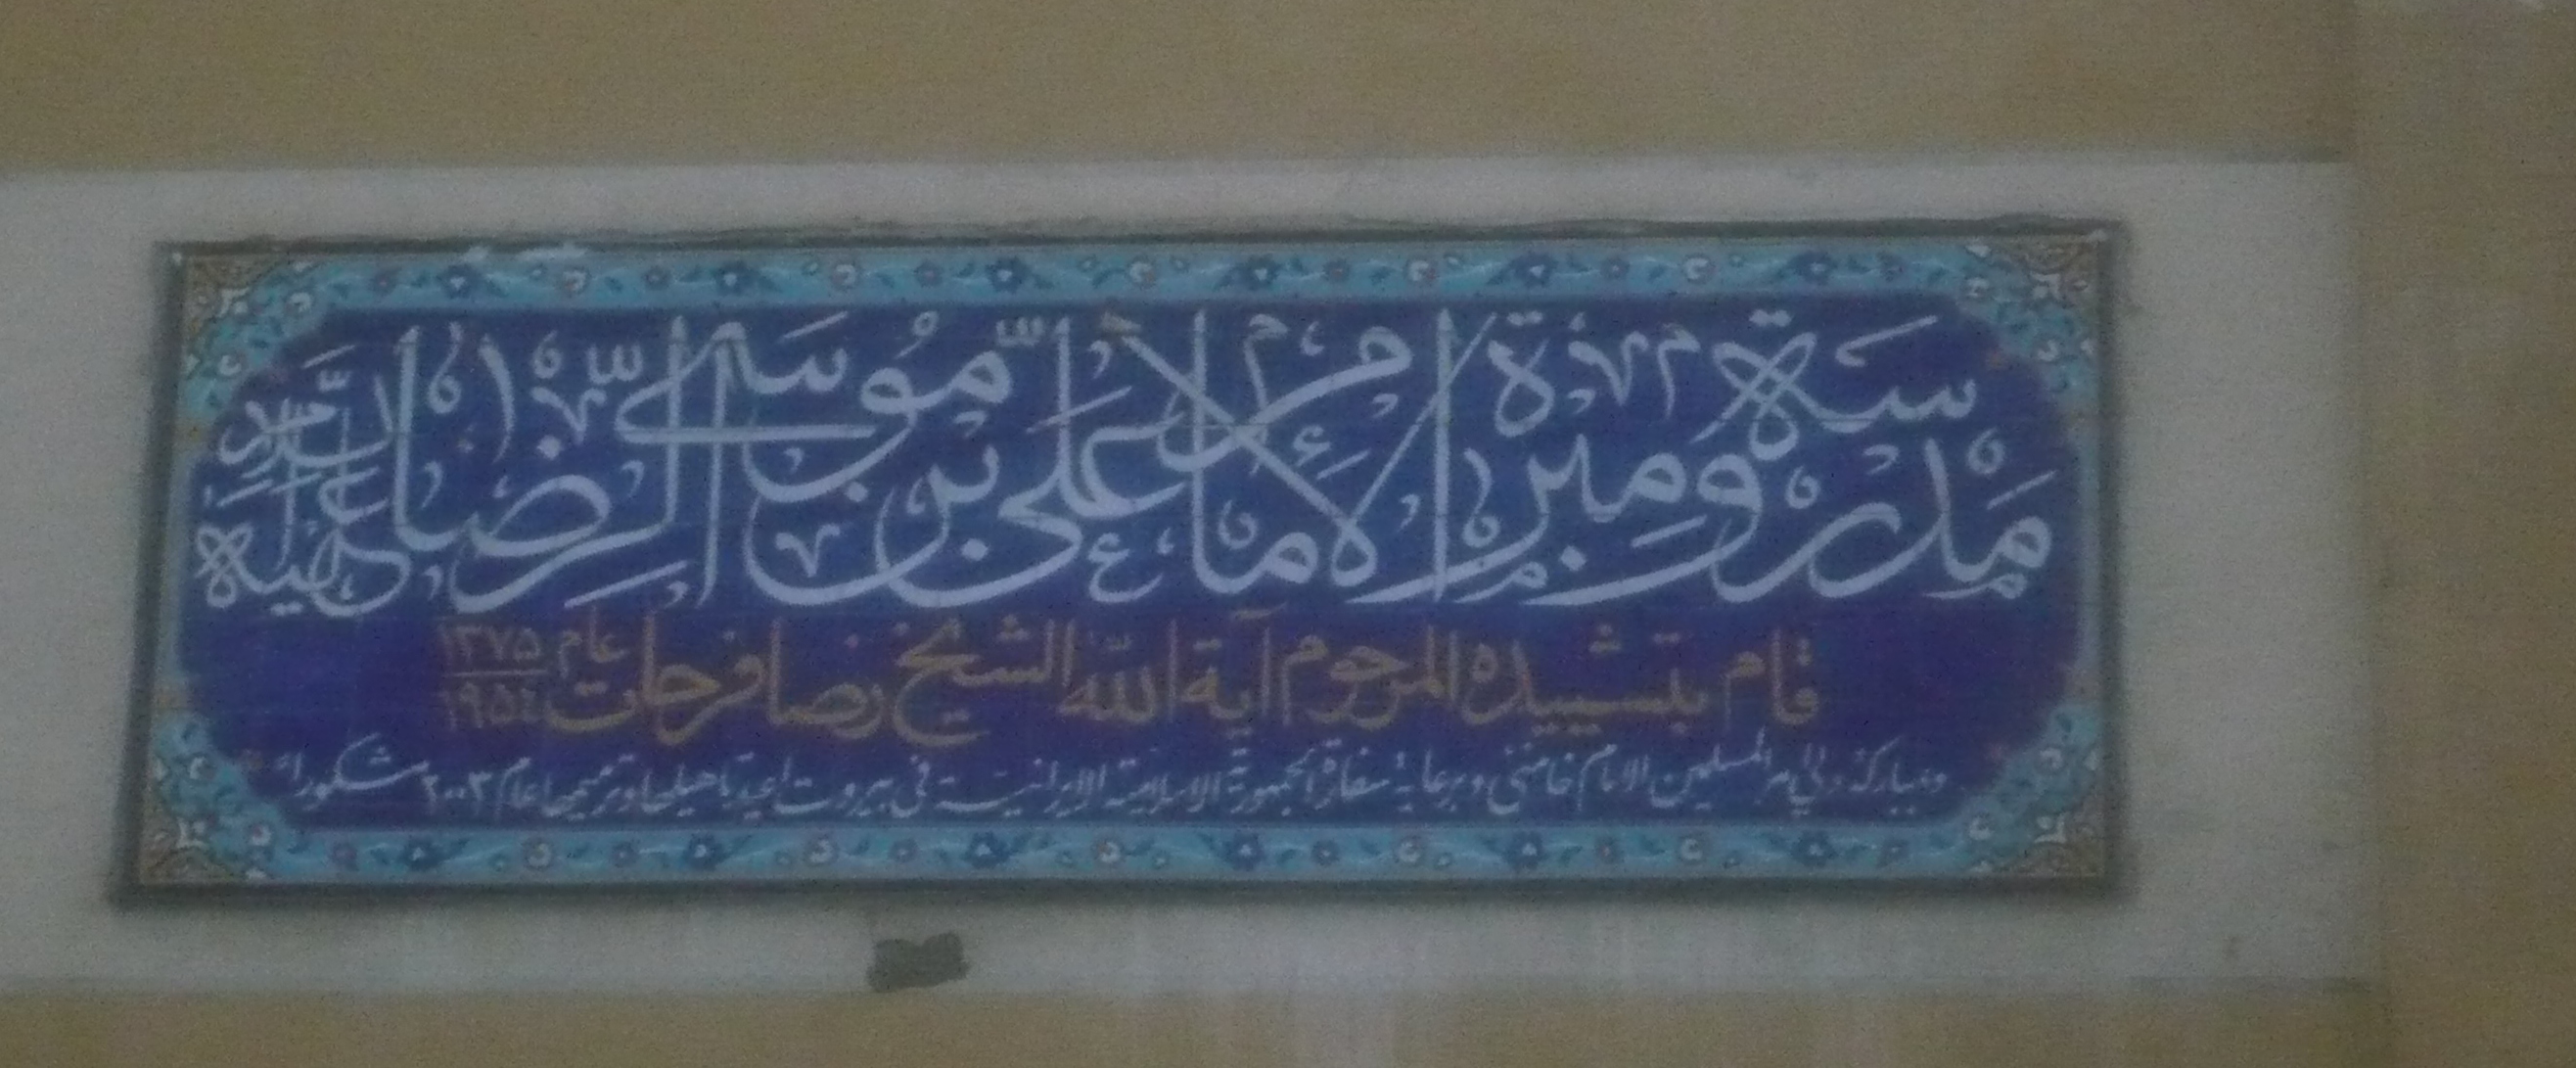 مدرسة ومبرة الإمام علي بن موسى الرضا عليه السلام
قام بتشييده المرحوم آية الله الشيخ رضا فرحات عام ١٣٧٥ ١٩٥٤
وبمباركة ولي أمر المسلمين الامام خامنئي وبرعاية سفارة الجمهورية الاسلامية الايرانية في بيروت اعيد تاهيلها وترميمها عام ٢٠٠٣ مشكوراً